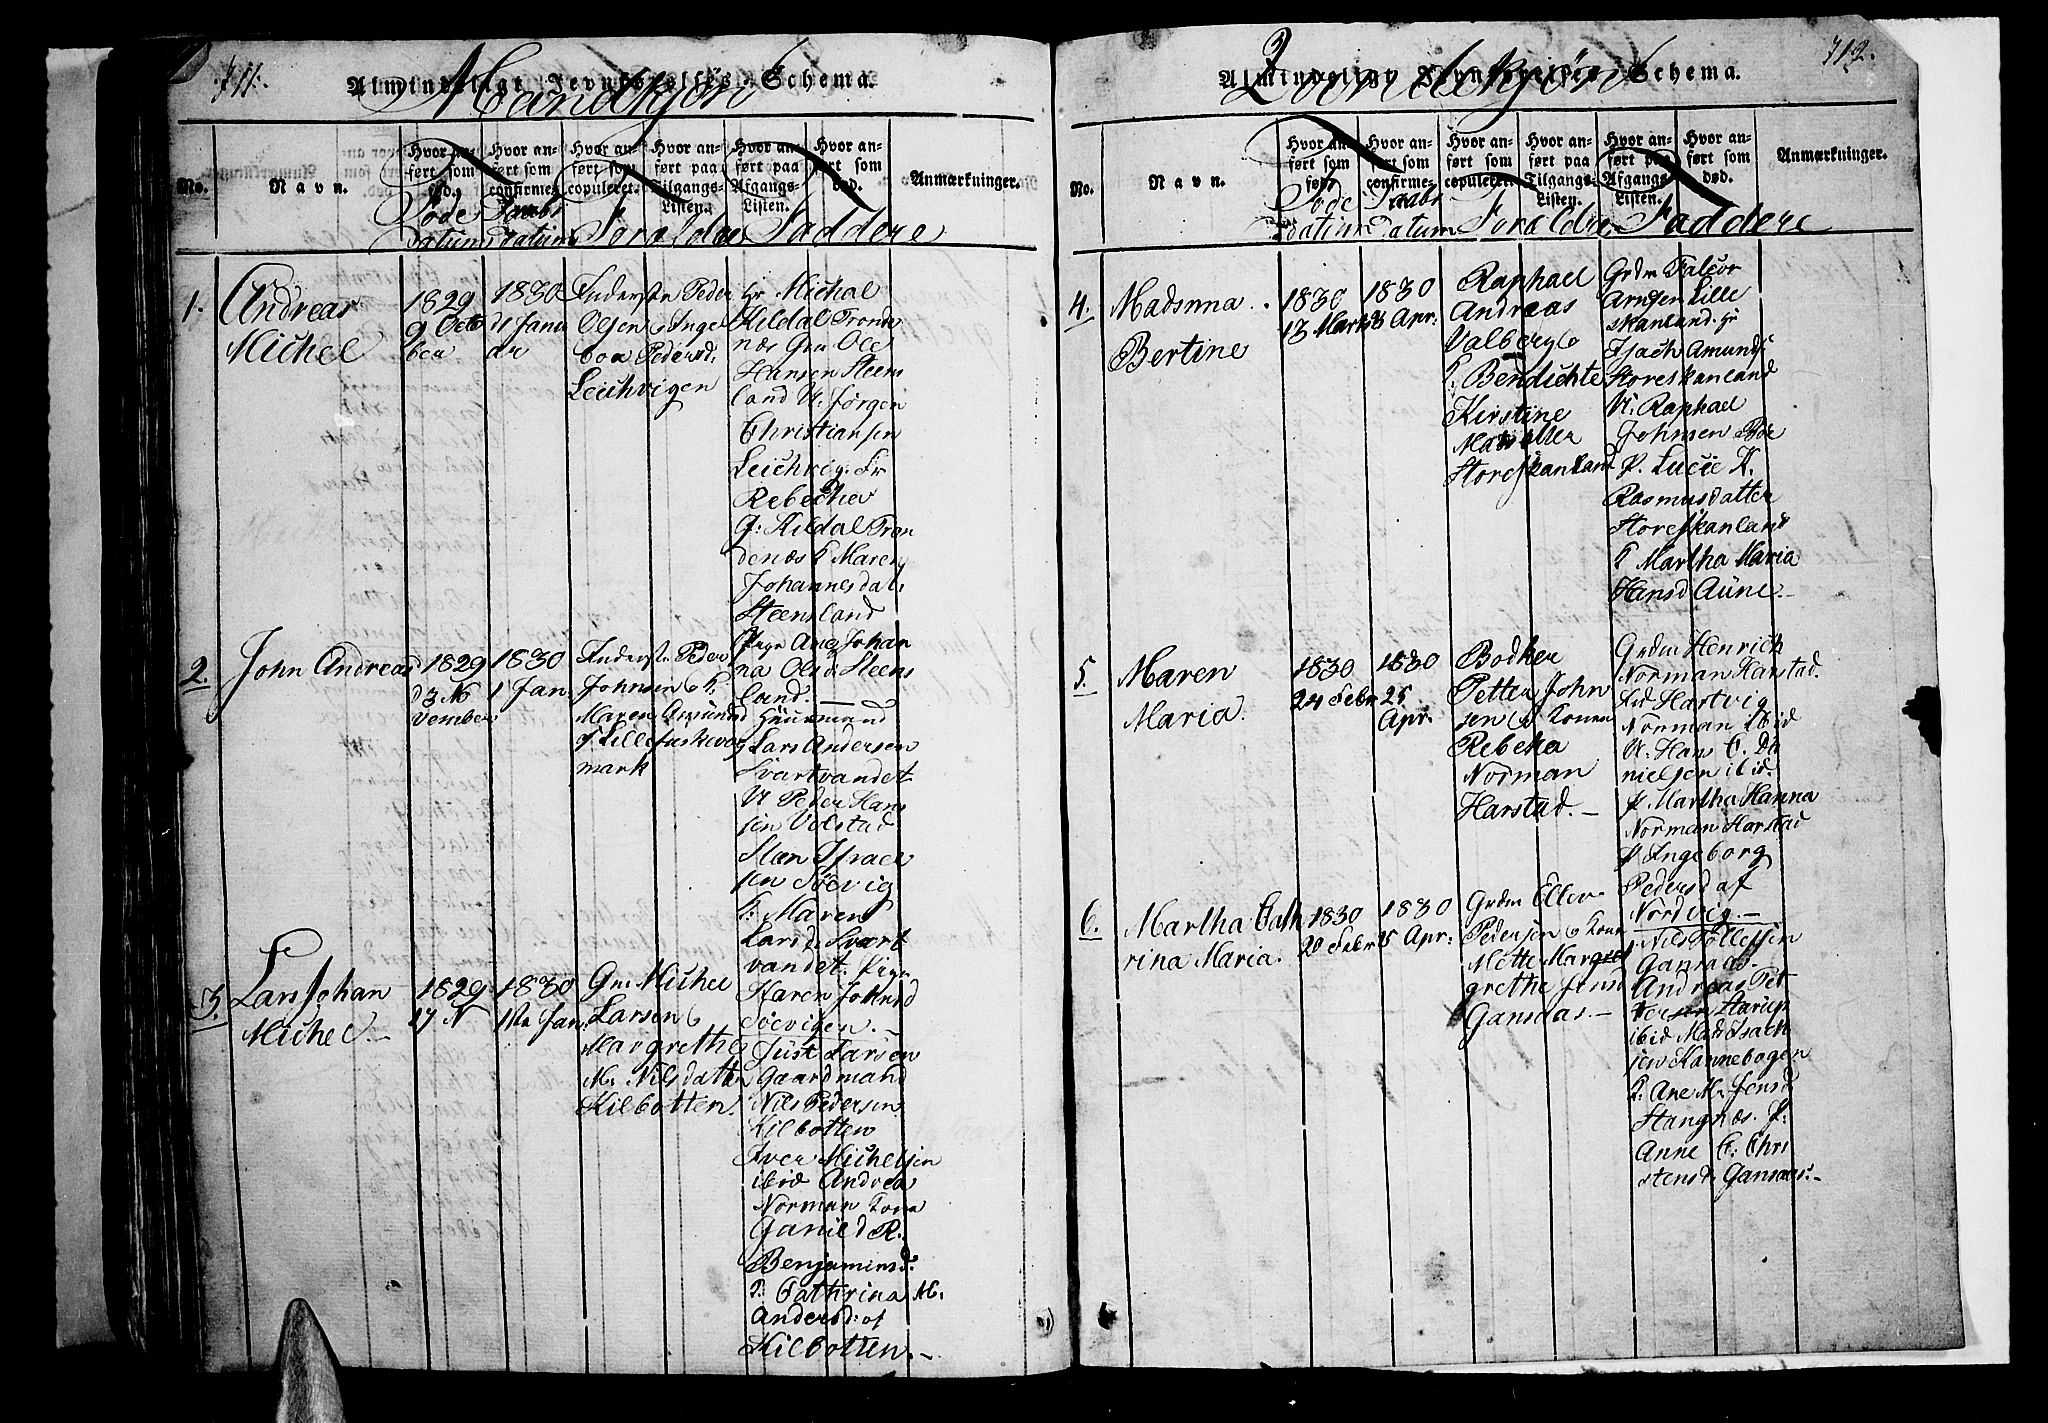 711.
Almindeligt Jevnførelses-Schema.
Mandkjøn
No.
Navn.
Hvor anført som fød.
Hvor anført som confirmeret.
Hvor anført som copuleret.
Hvor anført paa Tilgangs-Listen.
Hvor anført paa Afgangs-Listen.
Hvor anført som død.
Anmærkninger.
Føde
datum
Daabs
datum
Forældre
Faddere
1.
Andreas
Michel
1829
9 Octo
ber
1830
d 1 Janu
ar
Peder
Olsen
Pedersd.
Leichvigen
Hr Michal
Kildal Tronde
næs Gm Ole
Hansen Steens
land U: Jørgen
Christiansen
Leichvig. Fr
Rebecha
G: Kildal Tron
denæs K Maren
Johannesdat:
Steensland
Pige Ane Johan
na Olsd: Steens
land.
2.
John Andreas
1829
d 3 No
vember
1830
1 Jan.
Peder
Johnsen & K:
Maren Amunds
mark
Huusmand
Lars Andersen
Svartvandet
U Peder Hans
sen Volstad
Israel
sen Søevig
K: Maren
Larsd: Svart
vandet. Pige
Karen Johnsd
Søevigen.
3.
Lars Johan
Michel.
1829
17 N
1830
1ste Jan:
Gm Michel
Larsen &
Margrethe
M. Nilsdatter
Kilbotten.
Just Larsen
Gaardmand
Nils Pedersen
Kilbotten
Iver Michelsen
ibid Andrea
Norman Kona
Gunild R.
Benjaminsd:
P: Cathrina M:
Andersd: af
Kilbotten.
712.
Almindeligt Jevnførelses-Schema.
Qvindekjøn
No.
Navn.
Hvor anført som fød.
Hvor anført som confirmeret.
Hvor anført som copuleret.
Hvor anført paa Tilgangs-Listen.
Hvor anført paa Afgangs-Listen.
Hvor anført som død.
Anmærkninger.
Føde
datum
Daabs
datum
Forældre
Faddere
4.
Madsmna
Bertine
1830
13 Marts
1830
Apr:
Raphael
Andreas
Valberg &
K: Bendichte
Kirstine
Storeskanland
Grdm
Arntsen Lille
skanland. Hr
Isach Amunds
Storeskanland
U: Raphael
Johnsen
P. Lucie K.
Rasmusdatter
Storeskanland
K Martha Maria
Hansd Aune.
5.
Maren
Maria.
1830
24 Febr
1830
25
Apr.
Bødker
Petter John
sen & Konen
Rebeka
Norman
Harstad.
Grdm Henrich
Norman Harstad.
Hartvig
Norman ibid
U: Hans C. Da
nielsen ibid.
P. Martha Hanna
Norman Harstad
P Ingeborg
Pedersd af
Nordvig.
6.
Martha Cath
rina Maria.
1830
20 Febr
1830
25 Apr:
Grdm Ellev
Pedersen & Kone
Mette Mar
grethe
Gansaas.
Nils Tollefsen
Gansaas.
Andreas Pet
tersen
ibid Mads Isach
sen Kannebogen
K. Ane M. Jensd
Stangnæs. P.
Anne C. Chri
stensd. Gansaas.